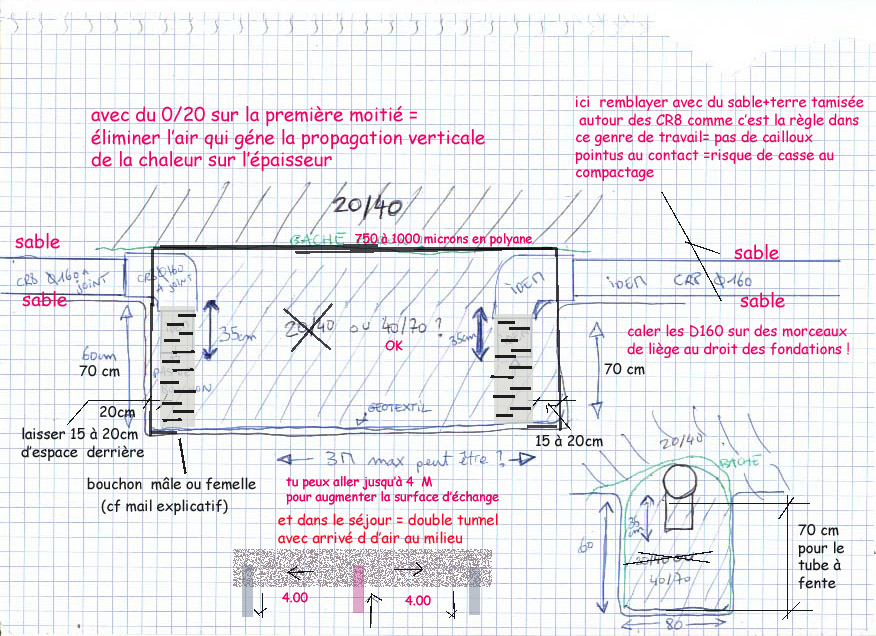 avec du 0/20 sur la première moitié =
éliminer l'air qui géne la propagation verticale
de la chaleur sur l'épaisseur
ici remblayer avec du sable+terre tamisée
autour des CR8 comme c'est la règle dans
ce genre de travail= pas de cailloux
pointus au contact =risque de casse au
compactage
20/40
BACHE 750 à 1000 microns en polyane
sable
sable
CR8 Ø160
joint
CR8 Ø160
joint
iDEM
iDEM CR8 Ø160
sable
sable
35cm
20/40 ou 40/70 ?
OK
35cm
caler les D160 sur des morceaux
de liège au droit des fondations !
60cm
70 cm
70 cm
20cm
GEOTEXTIL
laisser 15 à 20cm
d'espace derrière
15 à 20cm
3M max peut être ?
bouchon mâle ou femelle
(cf mail explicatif)
tu peux aller jusqu'à 4 M
pour augmenter la surface d'échange
et dans le séjour = double tunnel
avec arrivé d d'air au milieu
4.00
4.00
20/40
BACHE
35
cm
60
20/40 ou
40/70
80
70 cm
pour le
tube à
fente